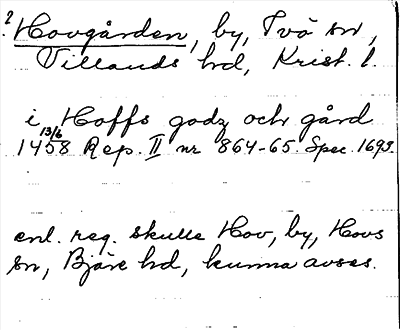 ? Hovgården, by, Två sn,
Villands hd, Krist. l.
i Hoffs godz och gård
1458 13/6 Rep. II nr 864-65. Spec. 1693.
enl. reg. skulle Hov, by, Hovs
sn, Bjäre hd, kunna avses.